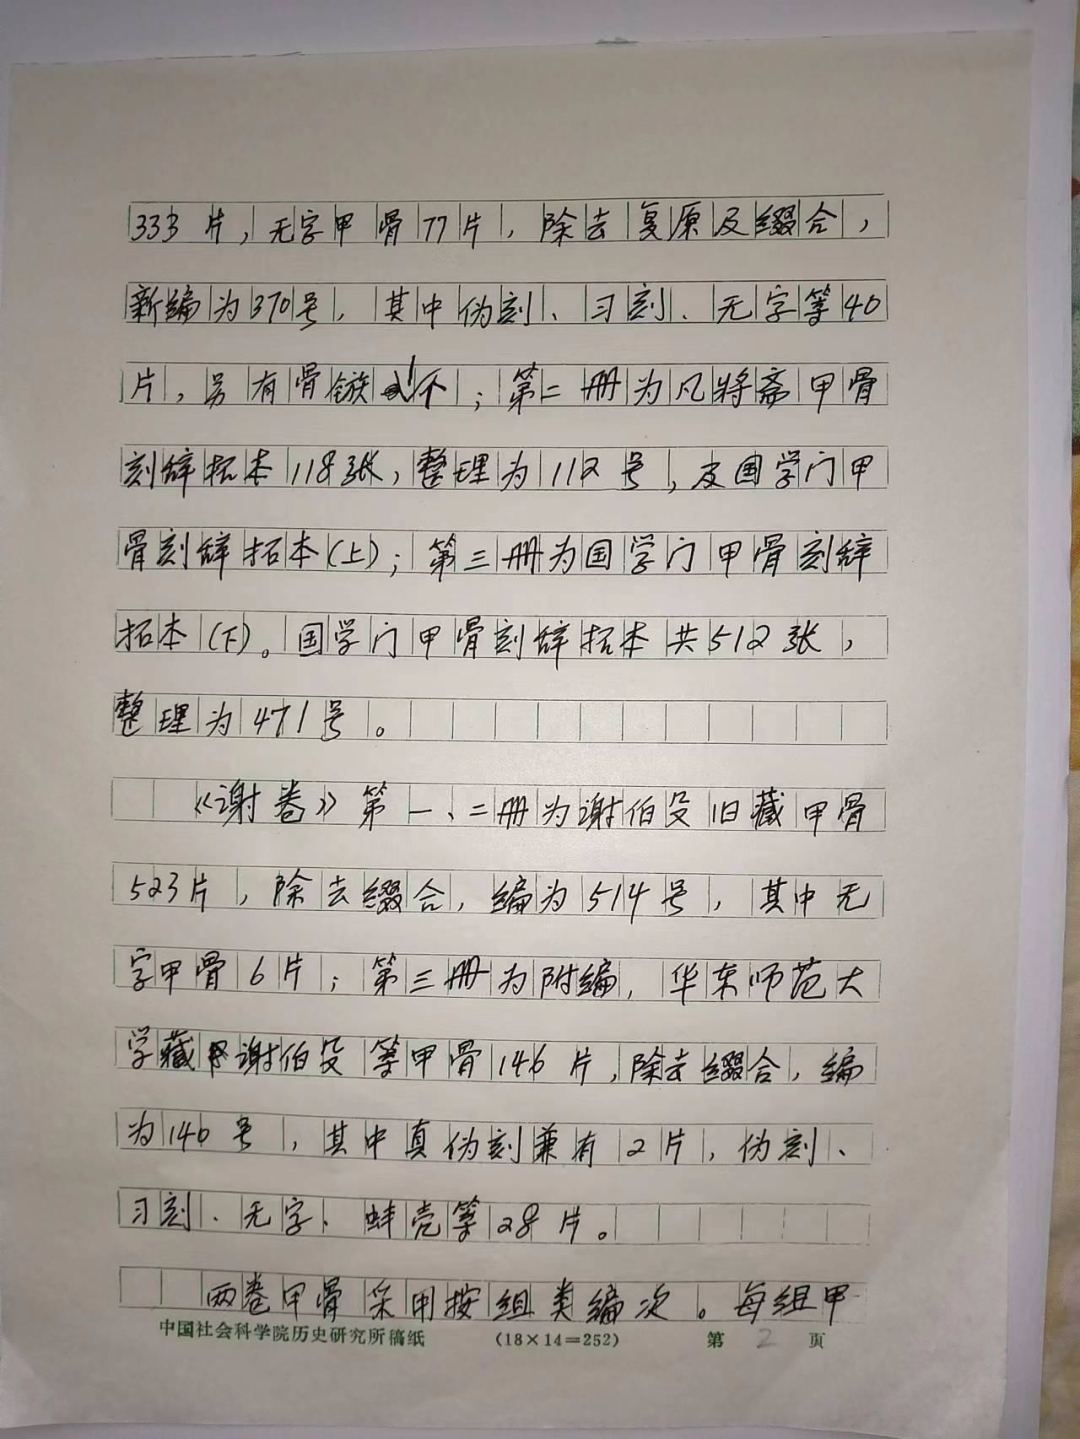 333片，无字甲骨77片，除去复原及缀合，
新编为370号，其中伪刻、习刻、无字等40
片，另有骨镞1个；第二册为凡将斋甲骨
刻辞拓本118张，整理为112号，及国学门甲
骨刻辞拓本（上）；第三册为国学门甲骨刻辞
拓本（下）。国学门甲骨刻辞拓本共512张，
整理为471号。
《谢卷》第一、二册为谢伯殳旧藏甲骨
523片，除去缀合，编为514号，其中无
字甲骨6片；第三册为附编，华东师范大
学藏谢伯殳等甲骨146片，除去缀合，编
为140号，其中真伪刻兼有2片，伪刻、
习刻、无字、蚌壳等28片。
两卷甲骨采用按组类编次。每组甲
中国社会科学院历史研究所稿纸 (18×14=252) 第2页